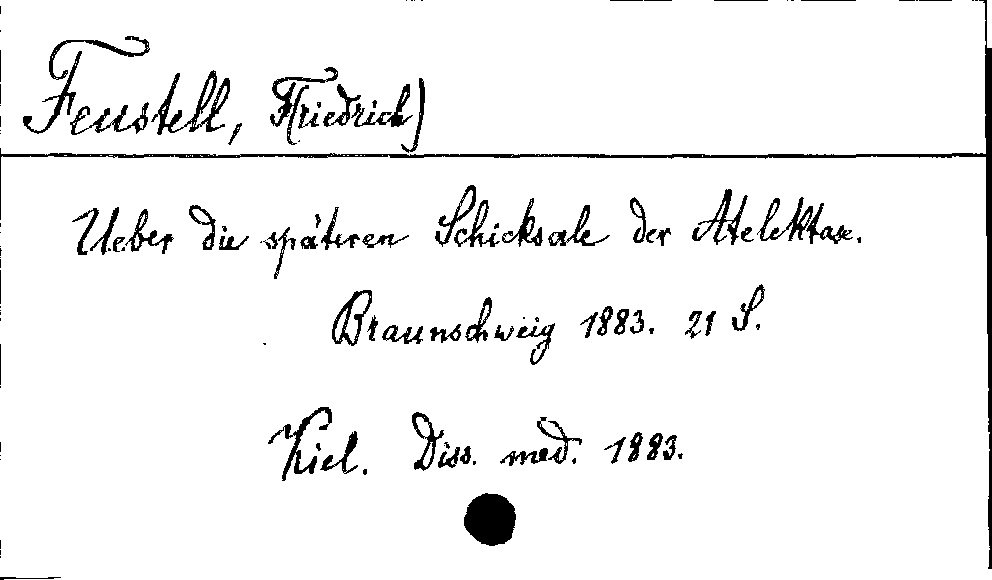 Feustell, F(riedrich)
Ueber die späteren Schicksale der Atelektase.
Braunschweig 1883. 21 S.
Kiel. Diss. med. 1883.